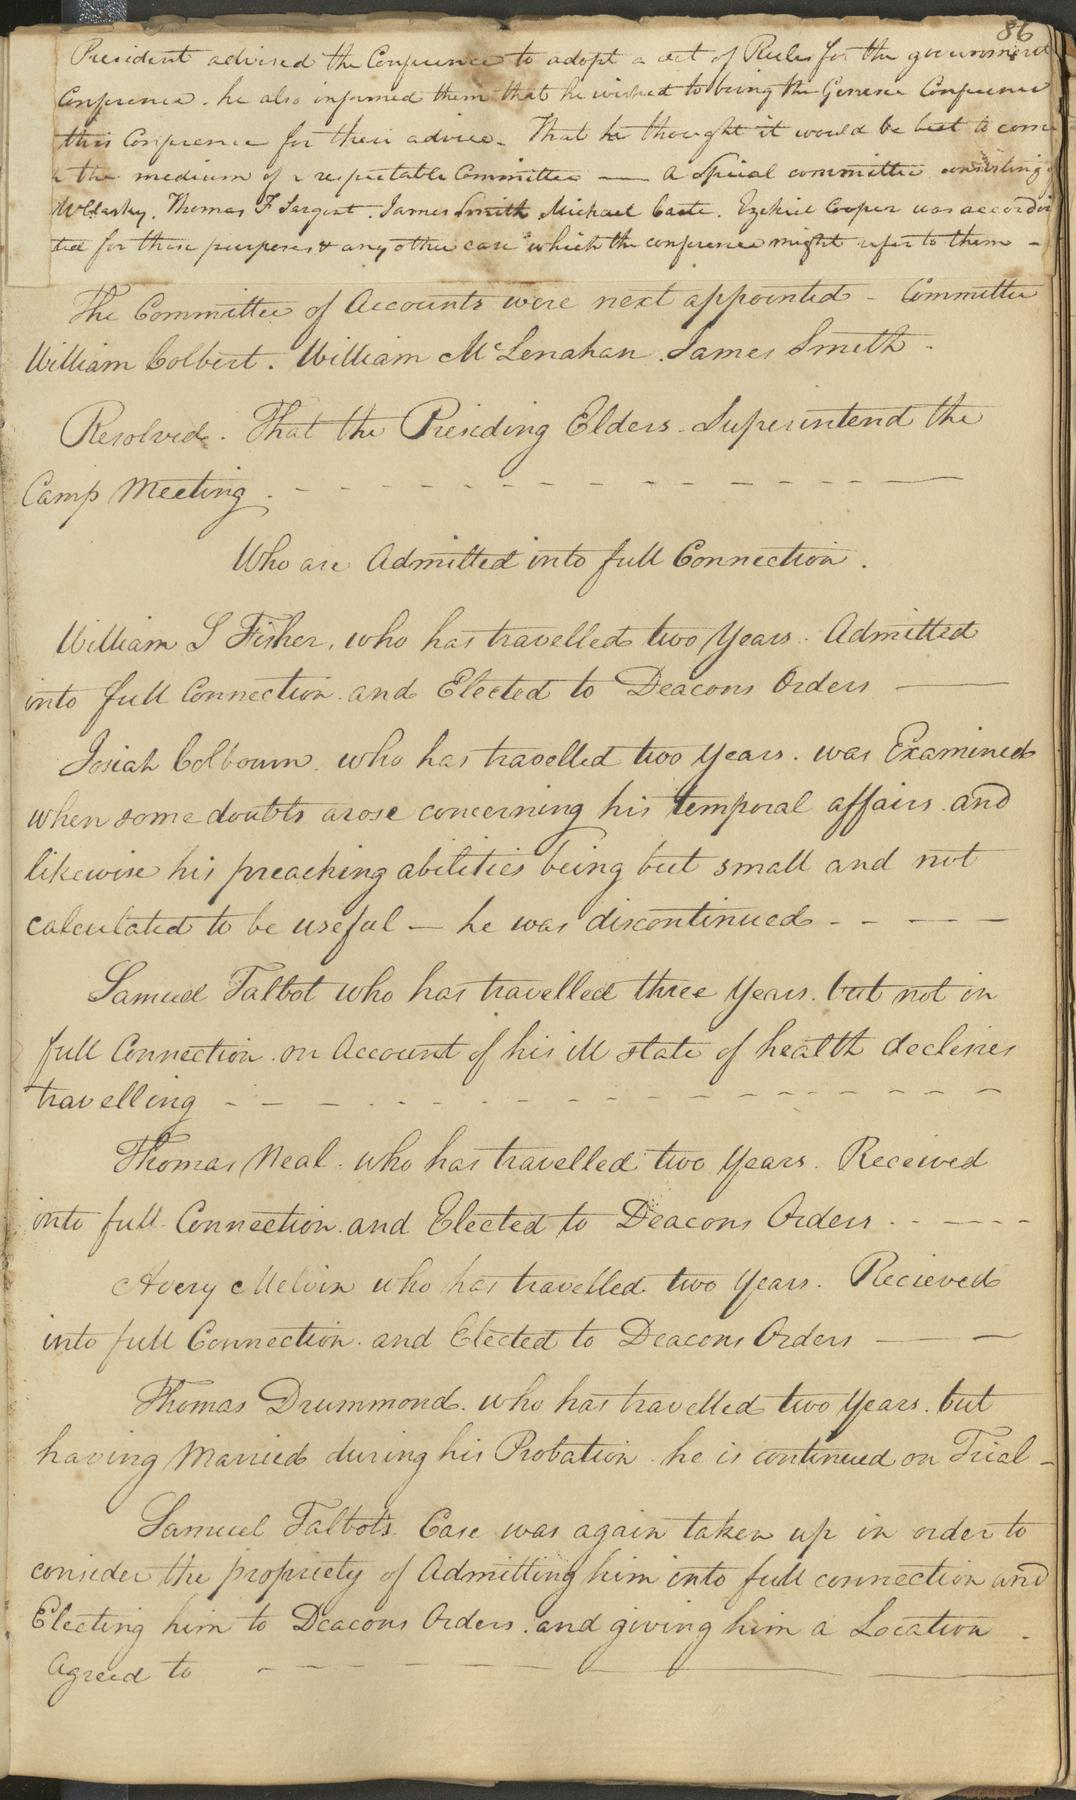 86
President advised the Conference to adopt a set of Rules for the government
Conference. he also informed them that he wished to bring the Genesee Conference
this Conference for their advice. That he thought it would be best to come
the medium of a respectable Committee — A Special committee consisting of
McClasky. Thomas F Sargent. James Smith Michael Coate. Ezekiel Cooper was accordin
ted for these purposes & any other case which the conference might refer to them -
The Committee of Accounts were next appointed - Committee
William Colbert. William McLenahan. James Smith -
Resolved. That the Presiding Elders Superintend the
Camp Meeting. - - - - - - - - - - - - —
Who are Admitted into full Connection.
William S Fisher, who has travelled two Years. Admitted
into full Connection and Elected to Deacons Orders ——
Josiah Colbourn. who has travelled two Years. was Examined
when some doubts arose concerning his temporal affairs and
likewise his preaching abilities being but small and not
calculated to be useful — he was discontinued - - — —
Samuel Talbot who has travelled three Years. but not in
full Connection. on Account of his ill state of health declines
travelling - - - - - - - - - - - - - - - -
Thomas Neal. who has travelled two Years. Received
into full Connection and Elected to Deacons Orders. - - - - -
Avery Melvin who has travelled two Years. Recieved
into full Connection. and Elected to Deacons Orders —— —
Thomas Drummond. who has travelled two Years. but
having Married during his Probation. he is continued on Trial -
Samuel Talbots. Case was again taken up in order to
consider the propriety of Admitting him into full connection and
Electing him to Deacons Orders. and giving him a Location -
Agreed to - - - — — — ——